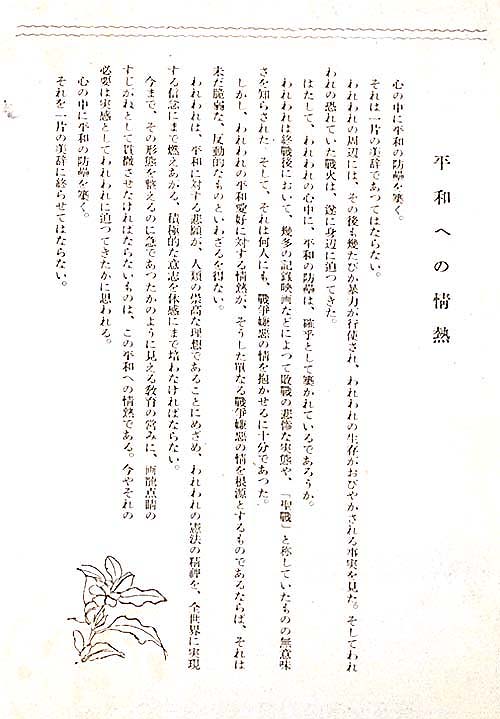 平和への情熱
心の中に平和の防壘を築く。
それは一片の美辞であつてはならない。
われわれの周辺には、その後も幾たびか暴力が行使され、われわれの生存がおびやかされる事実を見た。そしてわれ
われの恐れていた戰火は、遂に身辺に迫つてきた。
はたして、われわれの心中に、平和の防壘は、確乎として築かれているであろうか。
われわれは終戰後において、幾多の記録映画などによつて敗戰の悲惨な実態や、「聖戰」と称していたものの無意味
さを知らされた。そして、それは何人にも、戰爭嫌惡の情を抱かせるに十分であつた。
しかし、われわれの平和愛好に対する情熱が、そうした單なる戰爭嫌惡の情を根源とするものであるならば、それは
未だ脆弱な、反動的なものといわざるを得ない。
われわれは、平和に対する悲願が、人類の崇高な理想であることにめざめ、われわれの憲法の精神を、全世界に実現
する信念にまで燃えあがる、積極的な意志を体感にまで培わなければならない。
今まで、その形態を整えるのに急であつたかのように見える敎育の営みに、画龍点睛の
すじがねとして貫徹させなければならないものは、この平和への情熱である。今やそれの
必要は実感としてわれわれに迫つてきたかに思われる。
心の中に平和の防壘を築く。
それを一片の美辞に終らせてはならない。